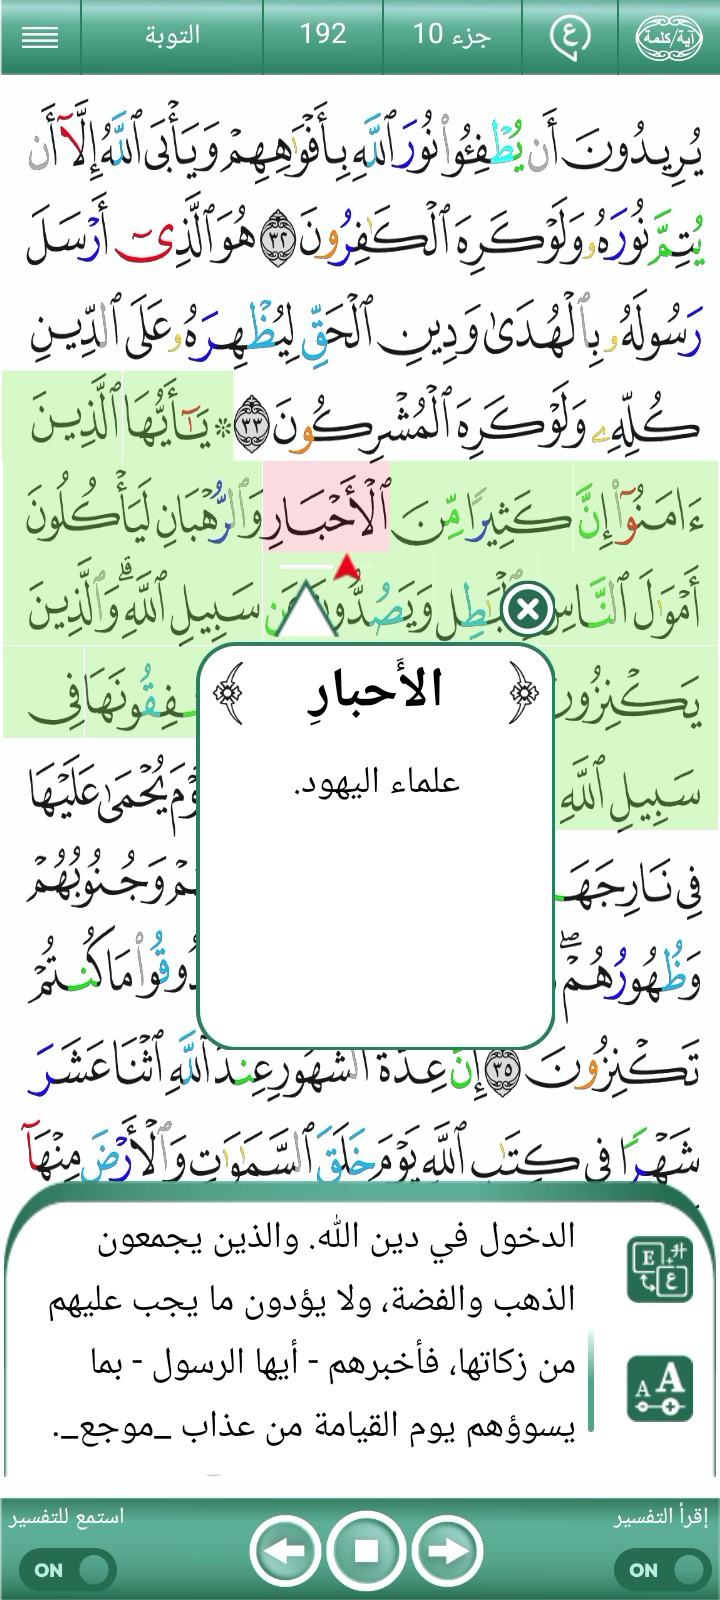 التوبة
192
جزء 10
آية/كلمة
يُرِيدُونَ أَن يُطْفِـُٔوا۟ نُورَ ٱللَّهِ بِأَفْوَٰهِهِمْ وَيَأْبَى ٱللَّهُ إِلَّآ أَن
يُتِمَّ نُورَهُۥ وَلَوْ كَرِهَ ٱلْكَٰفِرُونَ ٣٢ هُوَ ٱلَّذِىٓ أَرْسَلَ
رَسُولَهُۥ بِٱلْهُدَىٰ وَدِينِ ٱلْحَقِّ لِيُظْهِرَهُۥ عَلَى ٱلدِّينِ
كُلِّهِۦ وَلَوْ كَرِهَ ٱلْمُشْرِكُونَ ٣٣ ۞ يَٰٓأَيُّهَا ٱلَّذِينَ
ءَامَنُوٓا۟ إِنَّ كَثِيرًا مِّنَ ٱلْأَحْبَارِ وَٱلرُّهْبَانِ لَيَأْكُلُونَ
أَمْوَٰلَ ٱلنَّاسِ بِٱلْبَٰطِلِ وَيَصُدُّونَ عَن سَبِيلِ ٱللَّهِ ۗ وَٱلَّذِينَ
يَكْنِزُونَ
نفِقُونَهَا فِى
سَبِيلِ ٱللَّهِ
يَوْمَ يُحْمَىٰ عَلَيْهَا
فِى نَارِ جَهَـ
هُمْ وَجُنُوبُهُمْ
وَظُهُورُهُمْ ۖ
ذُوقُوا۟ مَا كُنتُمْ
تَكْنِزُونَ ٣٥ إِنَّ عِدَّةَ ٱلشُّهُورِ عِندَ ٱللَّهِ ٱثْنَا عَشَرَ
شَهْرًا فِى كِتَٰبِ ٱللَّهِ يَوْمَ خَلَقَ ٱلسَّمَٰوَٰتِ وَٱلْأَرْضَ مِنْهَآ
الأَحبارِ
علماء اليهود.
الدخول في دين الله. والذين يجمعون
الذهب والفضة، ولا يؤدون ما يجب عليهم
من زكاتها، فأخبرهم - أيها الرسول - بما
يسوؤهم يوم القيامة من عذاب _موجع_.
إقرأ التفسير
ON
استمع للتفسير
ON